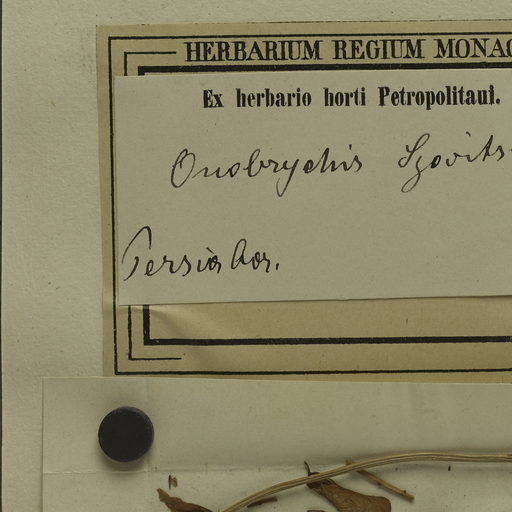 HERBARIUM REGIUM MONAC
Ex herbario horti Petropolitani.
Onobrychis Szovits
Persia bor.